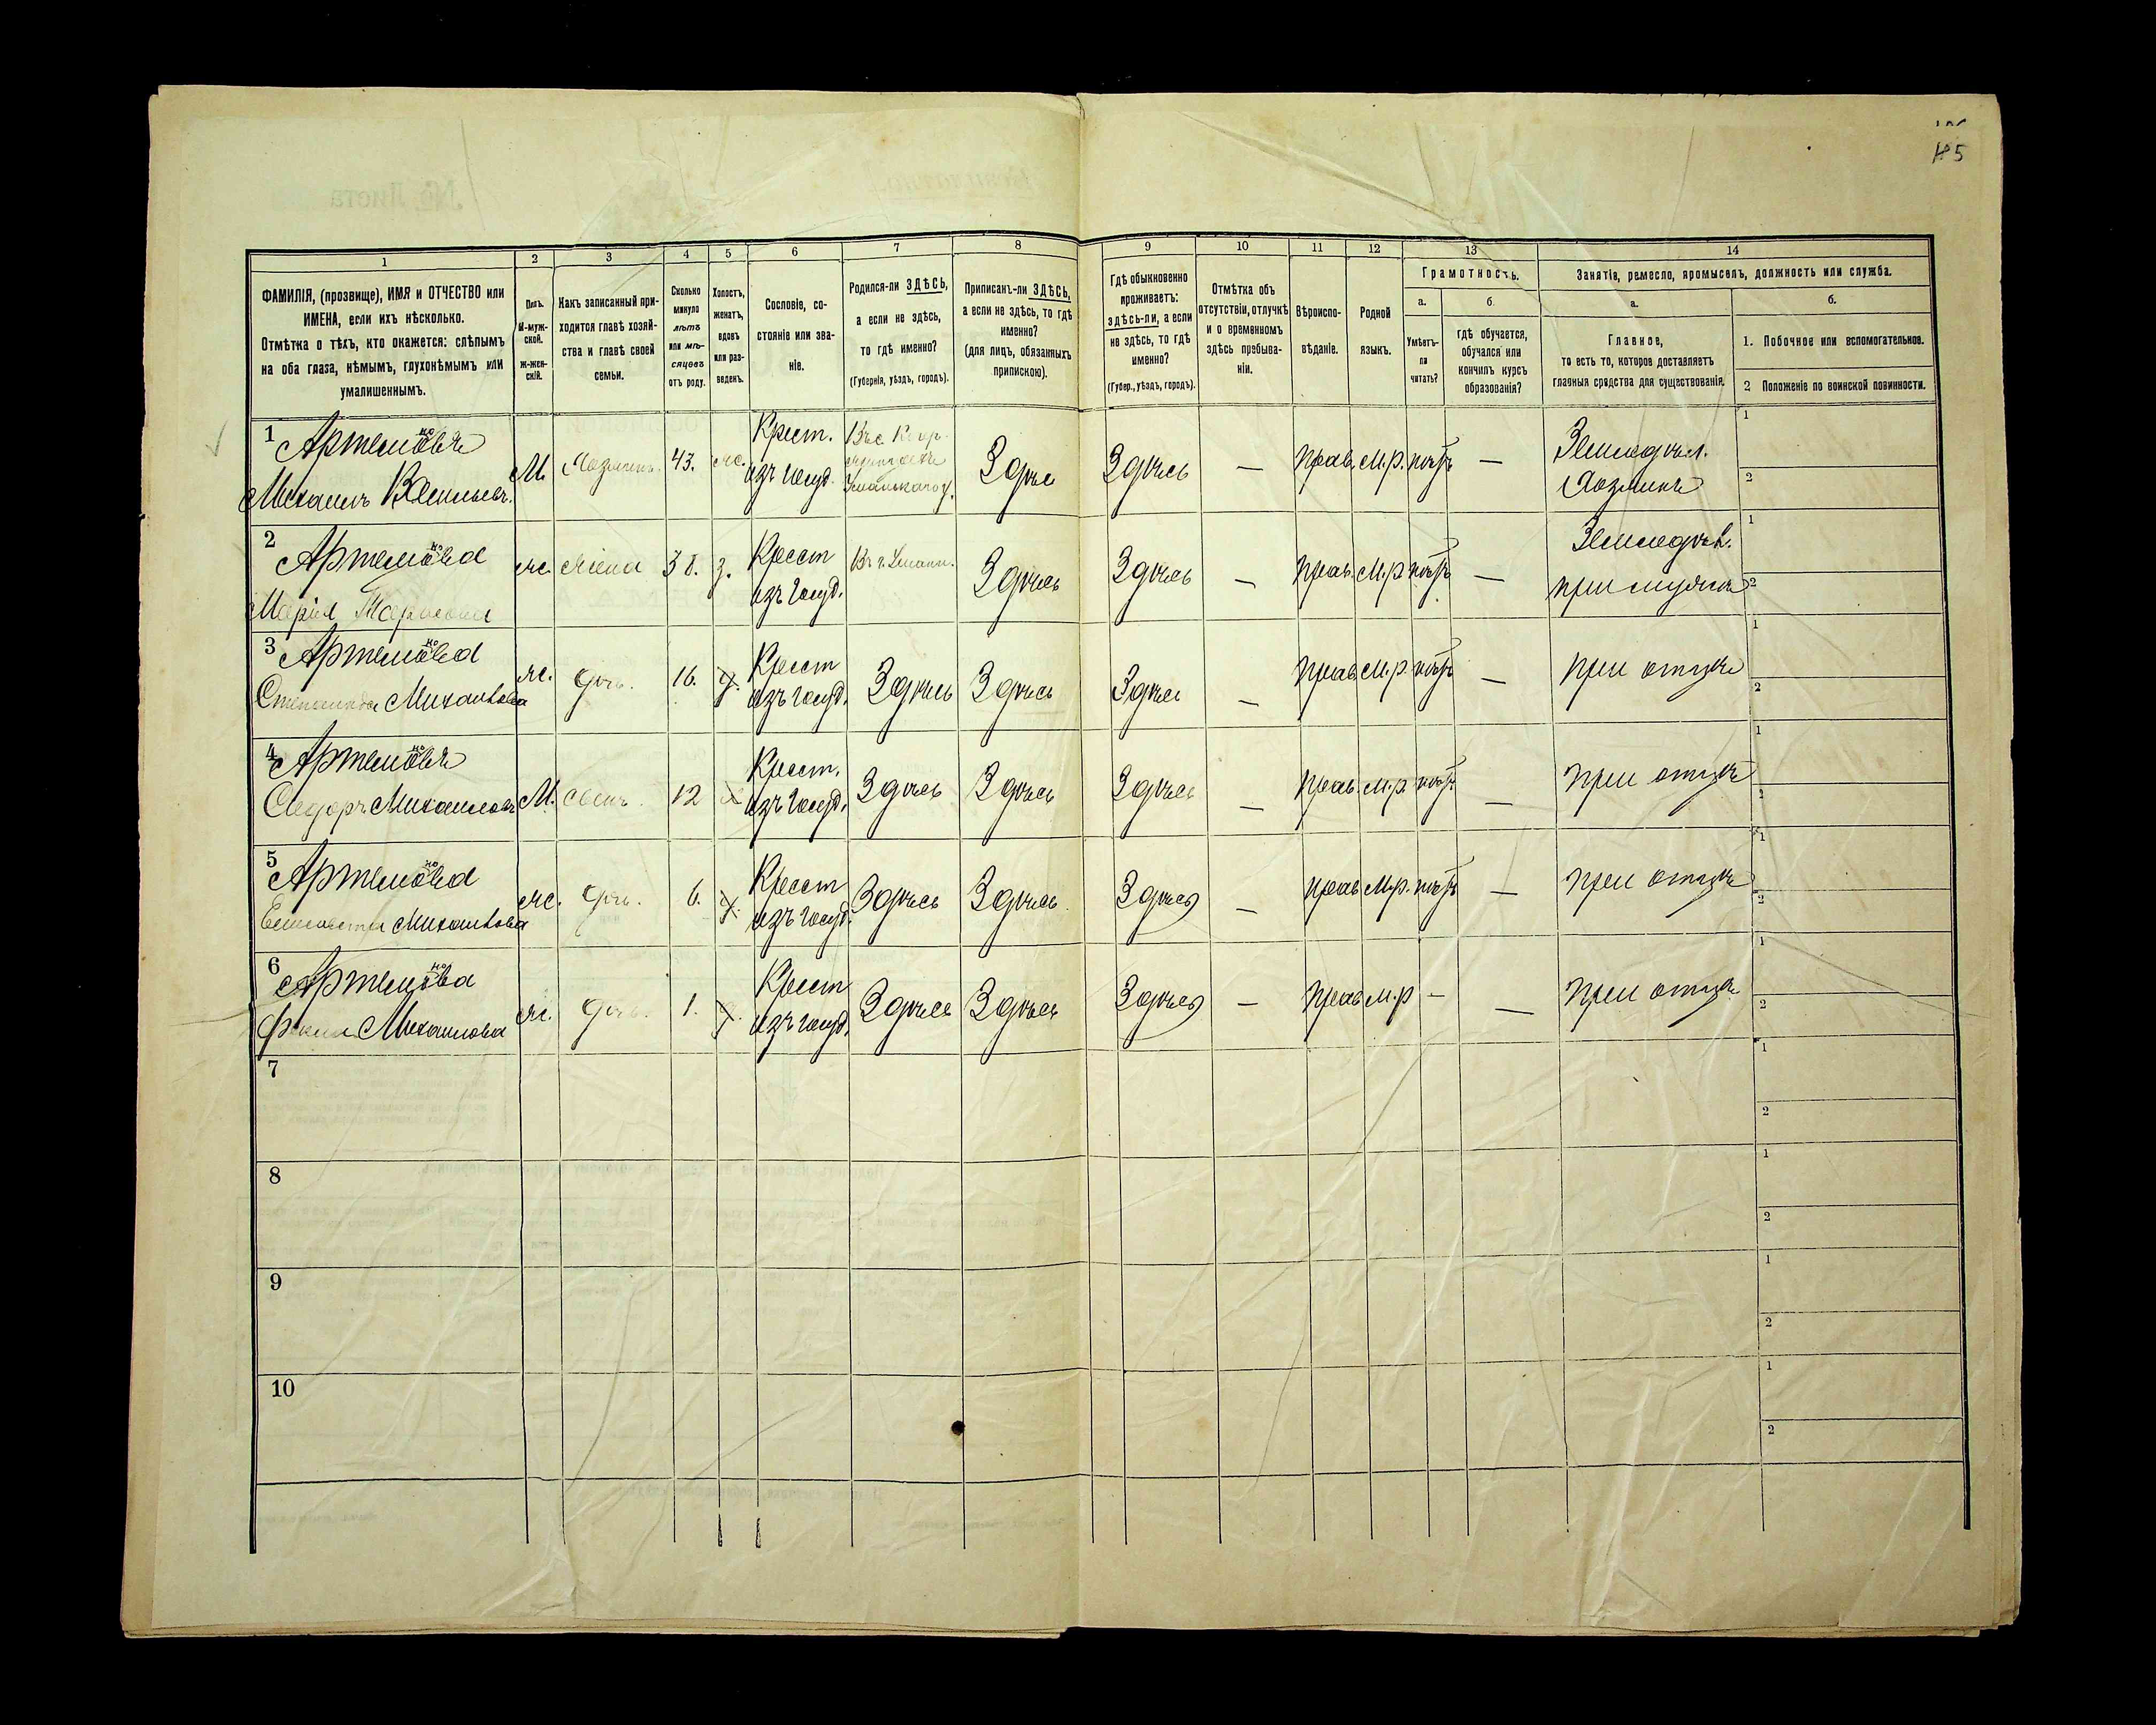 115
1
2
3
4
5
6
7
8
9
10
11
12
13
14
ФАМИЛІЯ, (прозвище), ИМЯ и ОТЧЕСТВО или
ИМЕНА, если ихъ нѣсколько.
Отмѣтка о тѣхъ, кто окажется: слѣпымъ
на оба глаза, нѣмымъ, глухонѣмымъ или
умалишеннымъ.
Полъ.
М-муж-
ской.
ж-жен-
скій.
Какъ записанный при-
ходится главѣ хозяй-
ства и главѣ своей
семьи.
Сколько
минуло
лѣтъ
или мѣ-
сяцевъ
отъ роду.
Холостъ,
женатъ,
вдовъ
или раз-
веденъ.
Сословіе, со-
стояніе или зва-
ніе.
Родился-ли ЗДѢСЬ,
а если не здѣсь,
то гдѣ именно?
(Губернія, уѣздъ, городъ).
Приписанъ-ли ЗДѢСЬ,
а если не здѣсь, то гдѣ
именно?
(для лицъ, обязанныхъ
припискою).
Гдѣ обыкновенно
проживаетъ:
здѣсь-ли, а если
не здѣсь, то гдѣ
именно?
(Губер., уѣздъ, городъ).
Отмѣтка объ
отсутствіи, отлучкѣ
и о временномъ
здѣсь пребыва-
ніи.
Вѣроиспо-
вѣданіе.
Родной
языкъ.
Грамотность.
а.
б.
Умѣетъ-
ли
читать?
гдѣ обучается,
обучался или
кончилъ курсъ
образованія?
Занятіе, ремесло, промыселъ, должность или служба.
а.
б.
Главное,
то есть то, которое доставляетъ
главныя средства для существованія.
1. Побочное или вспомогательное.
2 Положеніе по воинской повинности.
1
Артемовъ
но
Михаилъ Васильевъ.
М.
Хозяинъ.
43.
ж.
Крест.
изъ госуд.
Уманскаго у.
Здѣсь
Здѣсь
—
прав.
М.р.
нѣтъ
—
Земледѣл.
Хозяинъ
1
2
2
Артемова
но
Марія
ж.
жена
38.
з.
Крест
изъ госуд.
Въ г. Умани.
Здѣсь
Здѣсь
—
прав.
М.р.
нѣтъ
—
Земледѣл.
при мужѣ
1
2
3
Артемова
но
Степанида Михайлова
ж.
дочь.
16.
д.
Крест
изъ госуд.
Здѣсь
Здѣсь
Здѣсь
—
прав.
М.р.
нѣтъ
—
при отцѣ
1
2
4
Артемовъ
но
Ѳедоръ Михаиловъ
М.
сынъ.
12
х
Крест.
изъ госуд.
Здѣсь
Здѣсь
Здѣсь
—
прав.
М.р.
нѣтъ
—
при отцѣ
1
2
5
Артемова
но
Елисавета Михайлова
ж.
дочь.
6.
д.
Крест
изъ госуд.
Здѣсь
Здѣсь
Здѣсь
—
прав.
М.р.
нѣтъ
—
при отцѣ
1
2
6
Артемова
но
Михаилова
ж.
дочь.
1.
д.
Крест
изъ госуд.
Здѣсь
Здѣсь
Здѣсь
—
прав
М.р
—
—
при отцѣ
1
2
7
1
2
8
1
2
9
1
2
10
1
2